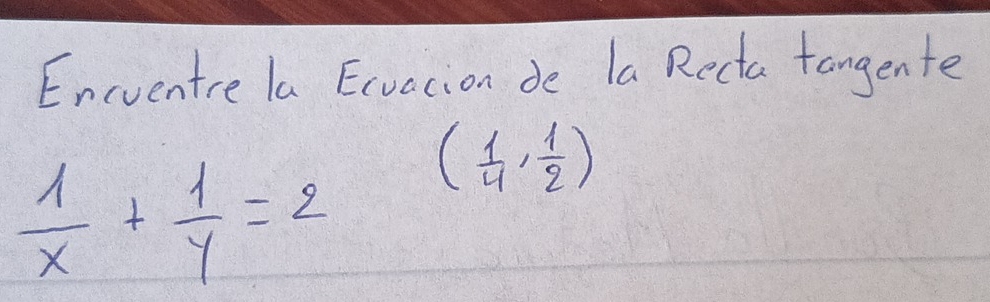 Encuentre la Ecuacion de la Recta tangente
(1/4, 1/2)
1/x + 1/y = 2